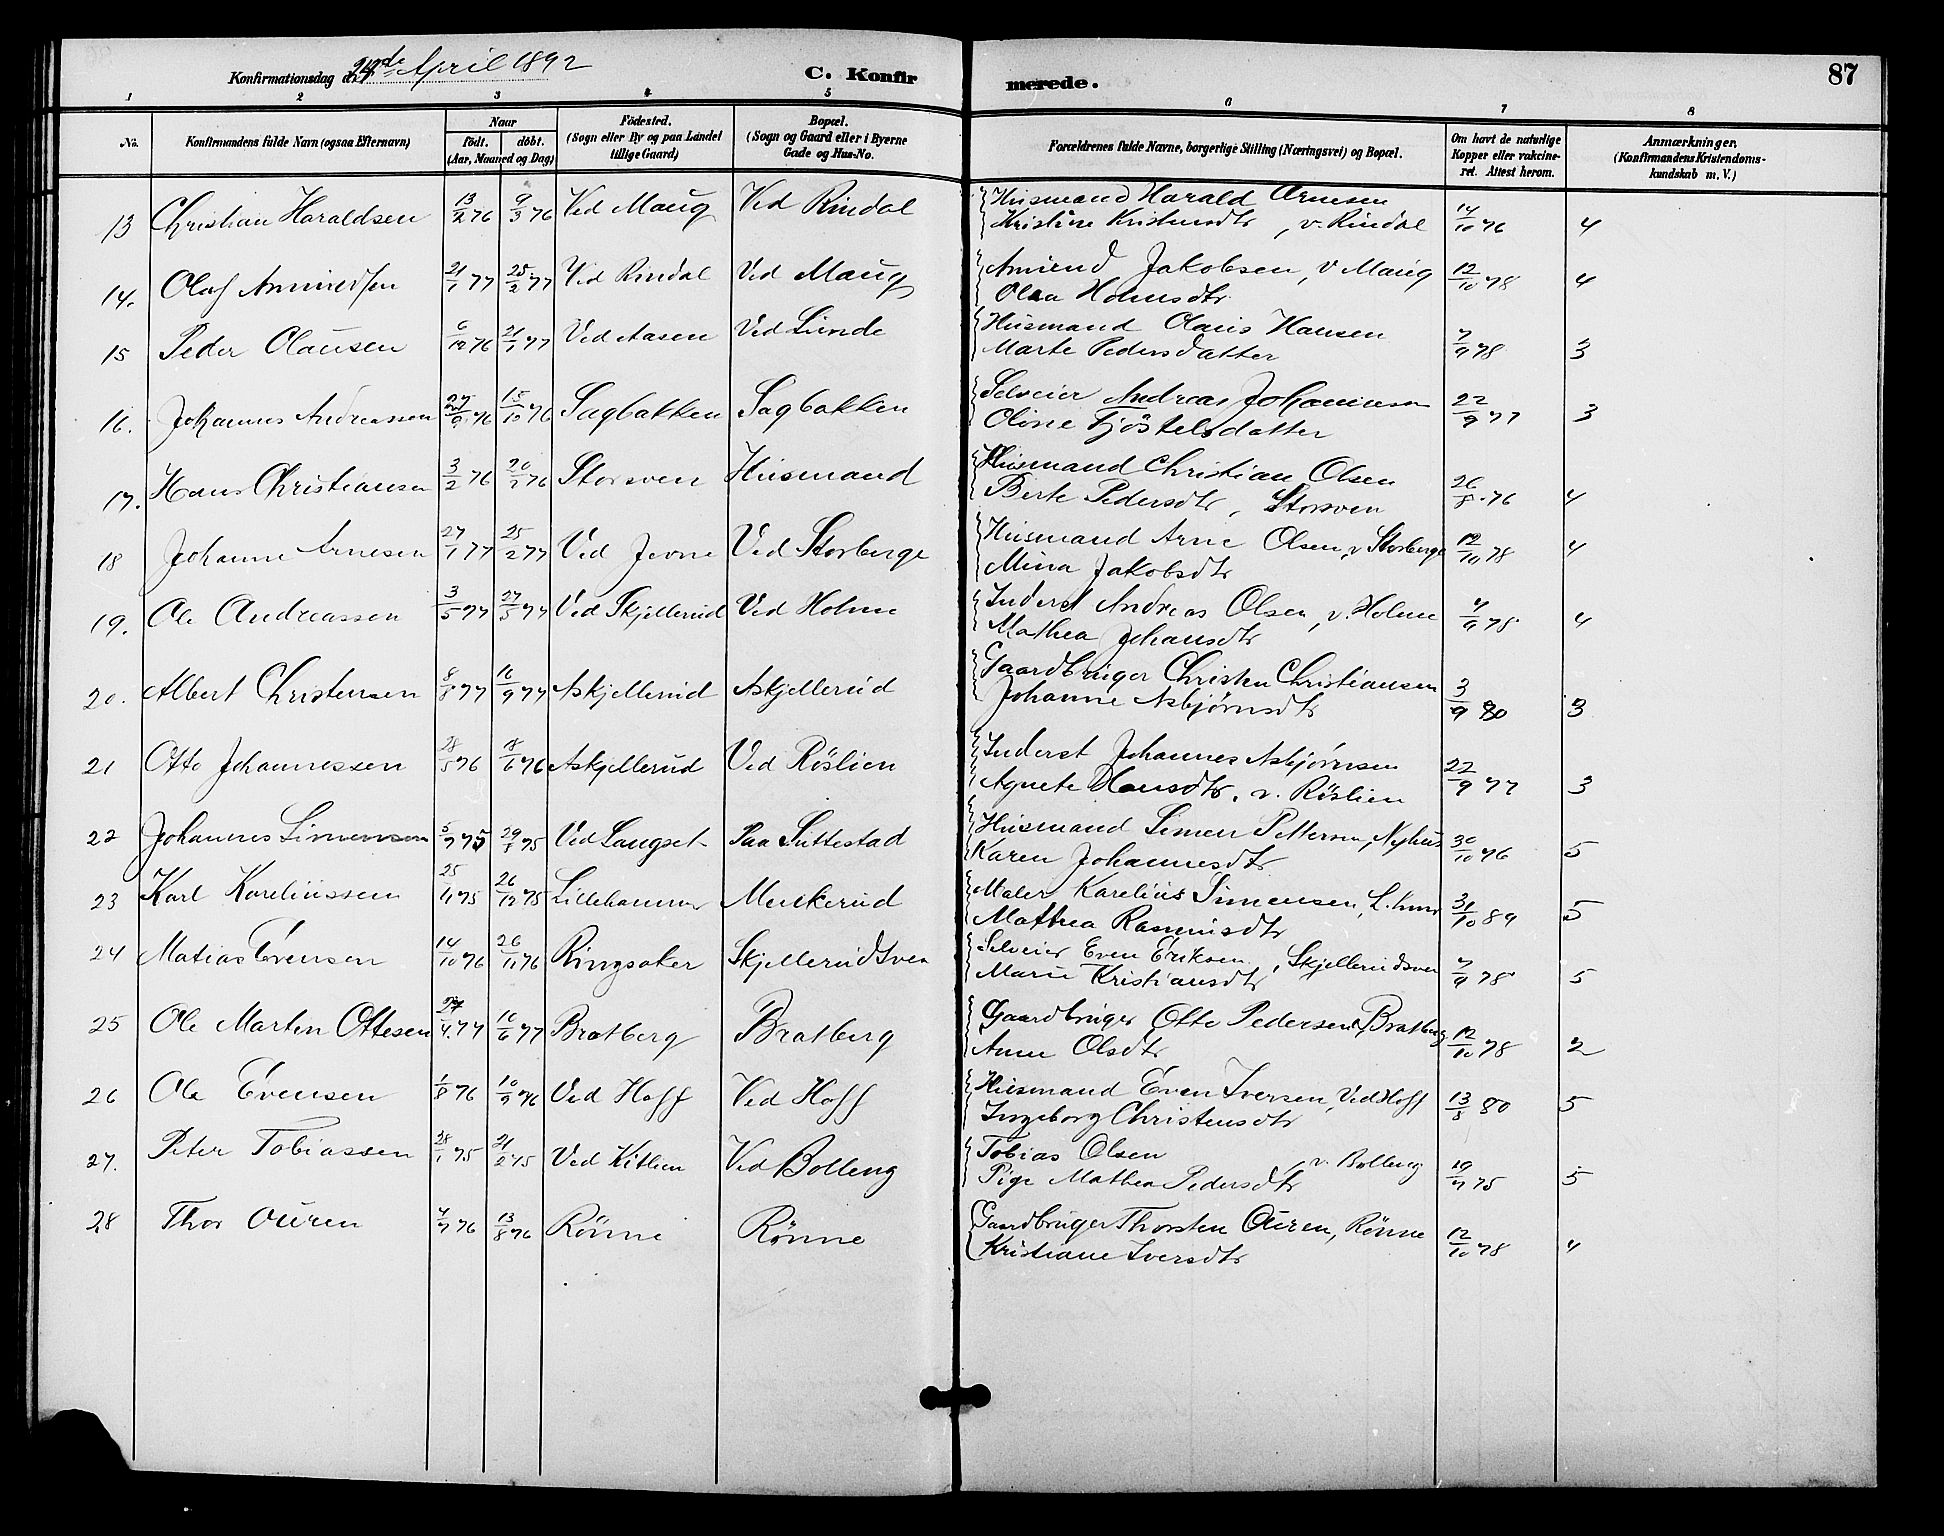 Konfirmationsdag d. 24de April 1892 C. Konfirmerede. 87
1 2 3 4 5 6 7 8
No. Konfirmandens fulde Navn (ogsaa Efternavn) Naar födt. döbt. (Aar, Maaned og Dag) Födested. (Sogn eller By og paa Landet tillige Gaard) Bopæl. (Sogn og Gaard eller i Byerne Gade og Hus-No. Forældrenes fulde Navne, borgerlige Stilling (Næringsvei) og Bopæl. Om havt de naturlige Kopper eller vakcineret. Attest herom. Anmærkninger. (Konfirmandens Kristendomskundskab m. V.)
13 Christian Haraldsen 13/2 76 9/3 76 Ved Maug Ved Rindal Husmand Harald Arnesen 14/10 76 4
Kristine Kristensdtr, v. Rindal
14. Olaf Amundsen 21/1 77 25/2 77 Ved Rindal Ved Maug Amund Jakobsen, v Maug 12/10 78 4
Olea Holmsdtr
15 Peder Olausen 6/12 76 21/1 77 Ved Aasen Ved Lunde Husmand Olaus Hansen 7/9 78 3
Marte Pedersdatter
16. Johannes Andreassen 27/9 76 15/10 76 Sagbakken Sagbakken Selveier Andreas Johannesen 22/9 77 3
Oline Tjöstelsdatter
17. Hans Christiansen 3/2 76 20/2 76 Storsven Husmand Husmand Christian Olsen 26/8 76 4
Berte Pedersdtr, Storsven
18 Johannes Arnesen 27/1 77 25/2 77 Ved Jevne Ved Storberge Husmand Arne Olsen, v Storberge 12/10 78 4
Mina Jakobsdtr
19. Ole Andreassen 3/5 77 27/5 77 Ved Skjellerud Ved Holme Inderst Andreas Olsen, v. Holme 7/9 78 4
Mathea Johansdtr
20. Albert Christensen 8/8 77 16/9 77 Askjellerud Askjellerud Gaardbruger Christen Christiansen 3/9 80 3
Johanne Asbjørnsdtr
21 Otto Johannessen 28/5 76 18/6 76 Askjellerud Ved Röslien Inderst Johannes Asbjörnsen 22/9 77 3
Agnete Hansdtr. v. Röslien
22 Johannes Simensen 5/7 75 29/8 75 Ved Langset Paa Suttestad Husmand Simen Pettersen, Nyhus 30/10 76 5
Karen Johannesdtr
23 Karl Kareliussen 25/11 75 26/12 75 Lillehammer Messkerud Maler Karelius Simensen, L.hmr 31/10 89 5
Mathea Rasmusdtr
24 Matias Evensen 14/10 76 26/11 76 Ringsaker Skjellerudsven Selveier Even Eriksen, Skjellerudsven 7/9 78 5
Marie Kristiansdtr
25 Ole Martin Ottesen 27/4 77 10/6 77 Bratberg Bratberg Gaardbruger Otto Pedersen Bratberg 12/10 78 2
Anne Olsdtr
26 Ole Evensen 1/8 76 10/9 76 Ved Hoff Ved Hoff Husmand Even Iversen, Ved Hoff 13/8 80 5
Ingeborg Christensdtr
27. Peter Tobiassen 28/1 75 21/2 75 Ved Kitlien Ved Bolleng Tobias Olsen 19/7 75 5
Pige Mathea Pedersdtr, v. Bolleng
28 Thor Ouren 7/7 76 13/8 76 Rönne Rönne Gaardbruger Thorsten Ouren, Rönne 12/10 78 4
Kristiane Iversdtr